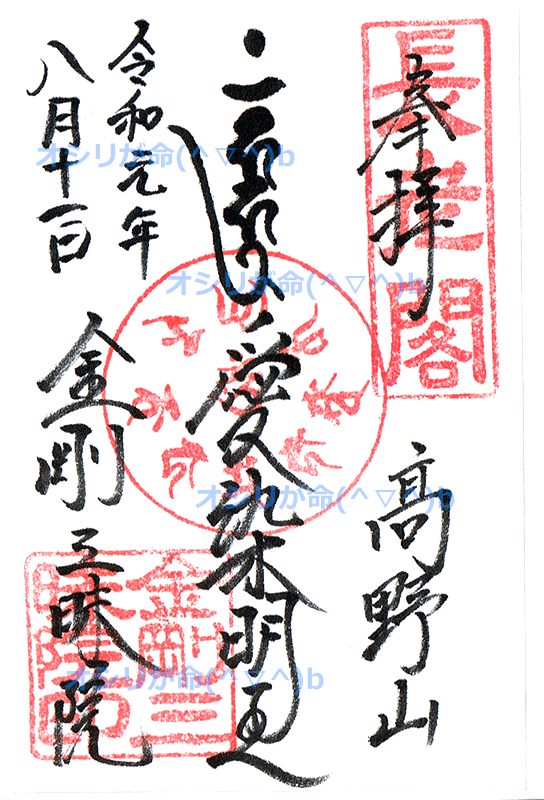 奉拝
長老閣
高野山
愛染明王
令和元年
八月十一日
金剛三昧院
金剛三昧院
オシリが命(^▽^)b
オシリが命(^▽^)b
オシリが命(^▽^)b
オシリが命(^▽^)b